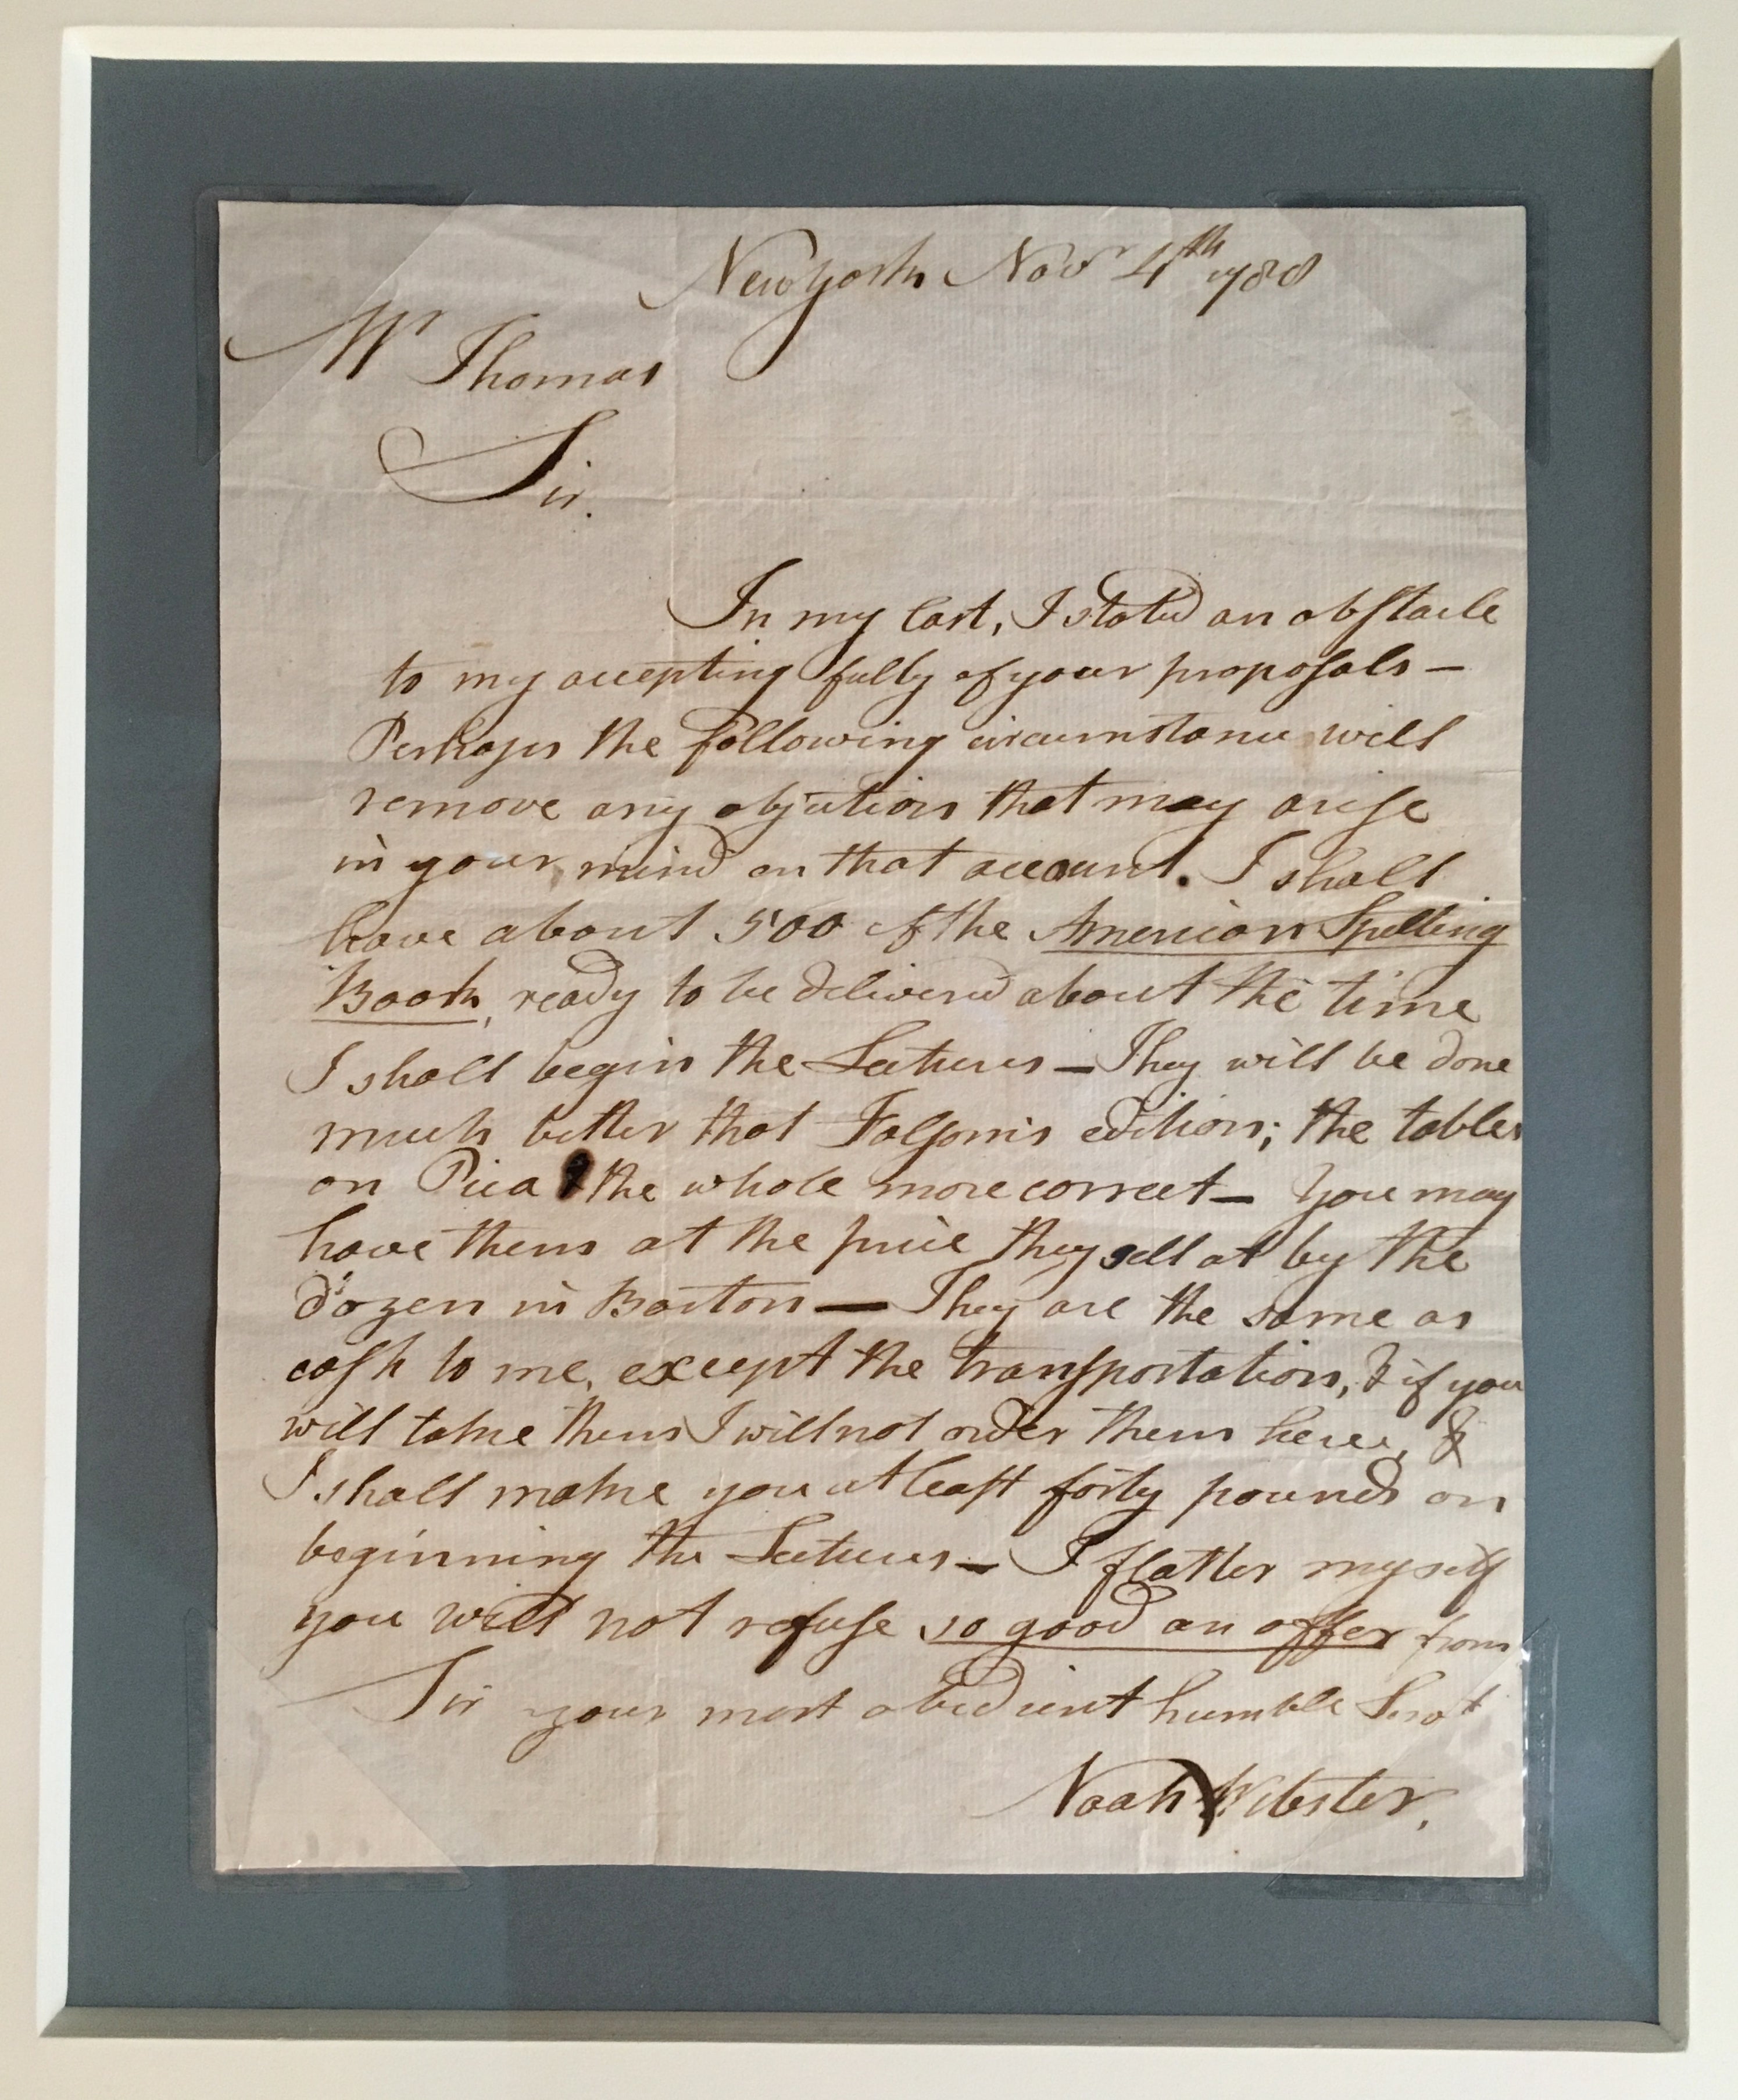 New york Novr 4th 1788
Mr Thomas
Sir.
In my last, I stated an obstacle
to my accepting fully of your proposals —
Perhaps the following circumstance will
remove any objections that may arise
in your mind on that account. I shall
have about 500 of the American Spelling
Book, ready to be delivered about the time
I shall begin the Lectures — They will be done
much better that Folsom's edition; the tables
on Pica & the whole more correct — You may
have them at the price they sell at by the
dozen in Boston — They are the same as
cash to me, except the transportation, & if you
will take them I will not order them here, &
I shall make you at least forty pounds on
beginning the Lectures — I flatter myself
you will not refuse so good an offer from
Sir your most obedient humble Servt
Noah Webster.